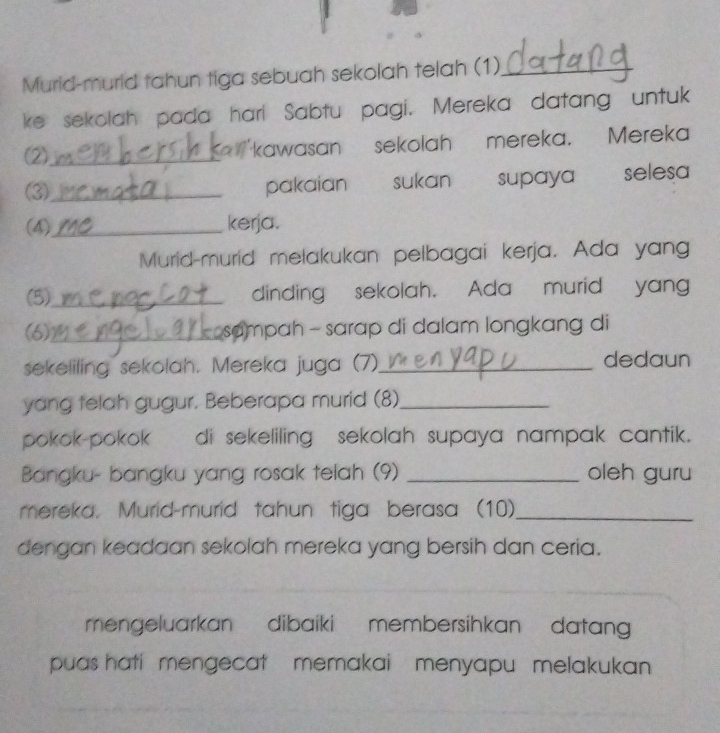 Murid-murid tahun tiga sebuah sekolah telah (1) datang
ke sekolah pada hari Sabtu pagi. Mereka datang untuk
(2) membersihkan kawasan sekolah mereka. Mereka
(3) memakai pakaian sukan supaya selesa
(4) me kerja.
Murid-murid melakukan pelbagai kerja. Ada yang
(5) mengecat dinding sekolah. Ada murid yang
(6) mengeluarkan sampah - sarap di dalam longkang di
sekeliling sekolah. Mereka juga (7) menyapu dedaun
yang telah gugur. Beberapa murid (8)
pokok-pokok di sekeliling sekolah supaya nampak cantik.
Bangku- bangku yang rosak telah (9) oleh guru
mereka. Murid-murid tahun tiga berasa (10)
dengan keadaan sekolah mereka yang bersih dan ceria.
mengeluarkan dibaiki membersihkan datang
puas hati mengecat memakai menyapu melakukan